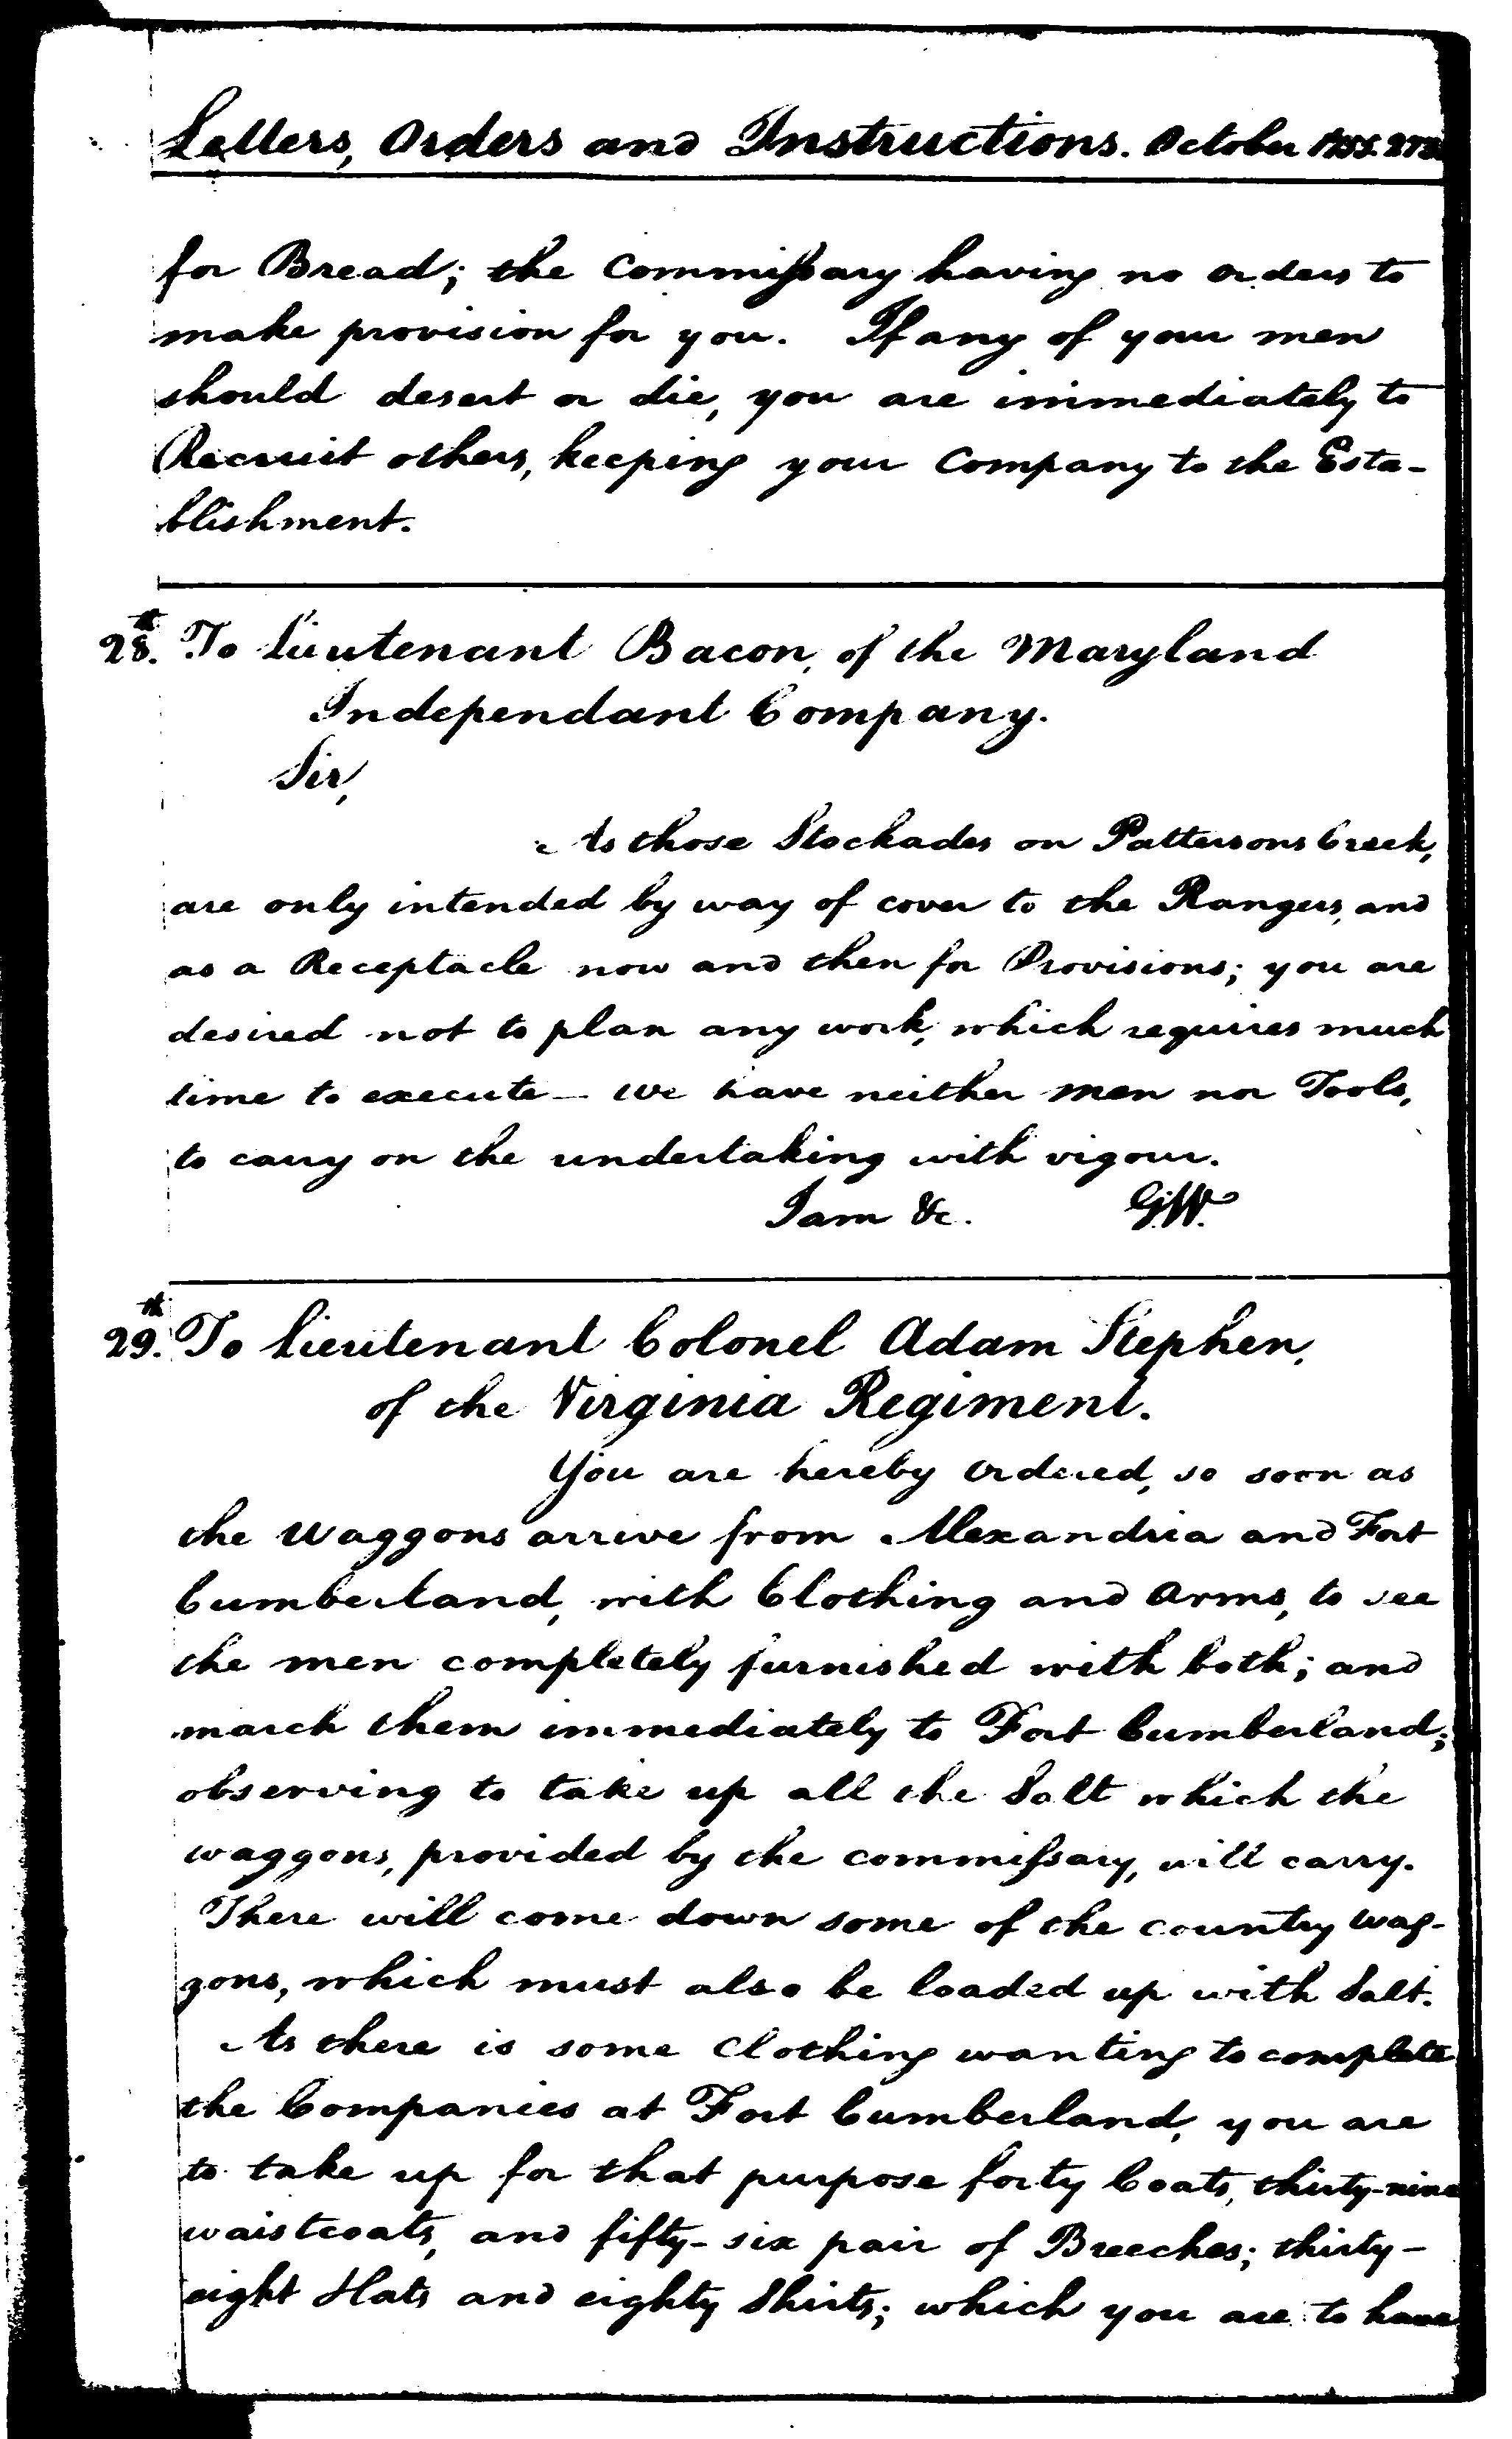 Letters, Orders and Instructions. October 1755.
for Bread; the Commissary having no orders to
make provision for you. If any of your men
should desert or die, you are immediately to
Recruit others, keeping your Company to the Esta-
blishment.
28th. To Lieutenant Bacon, of the Maryland
Independant Company.
Sir,
As those Stockades on Pattersons Creek,
are only intended by way of cover to the Rangers, and
as a Receptacle now and then for Provisions; you are
desired not to plan any work, which requires much
time to execute — we have neither men nor Tools,
to carry on the undertaking with vigour.
I am &c. G:W.
29th. To Lieutenant Colonel Adam Stephen,
of the Virginia Regiment.
You are hereby Ordered, so soon as
the Waggons arrive from Alexandria and Fort
Cumberland, with Clothing and Arms, to see
the men completely furnished with both; and
march them immediately to Fort Cumberland;
observing to take up all the Salt which the
waggons, provided by the commissary, will carry.
There will come down some of the country wag-
gons, which must also be loaded up with Salt.
As there is some Clothing wanting to complete
the Companies at Fort Cumberland, you are
to take up for that purpose forty Coats, thirty-nine
waistcoats, and fifty-six pair of Breeches; thirty-
eight Hats and eighty Shirts; which you are to have